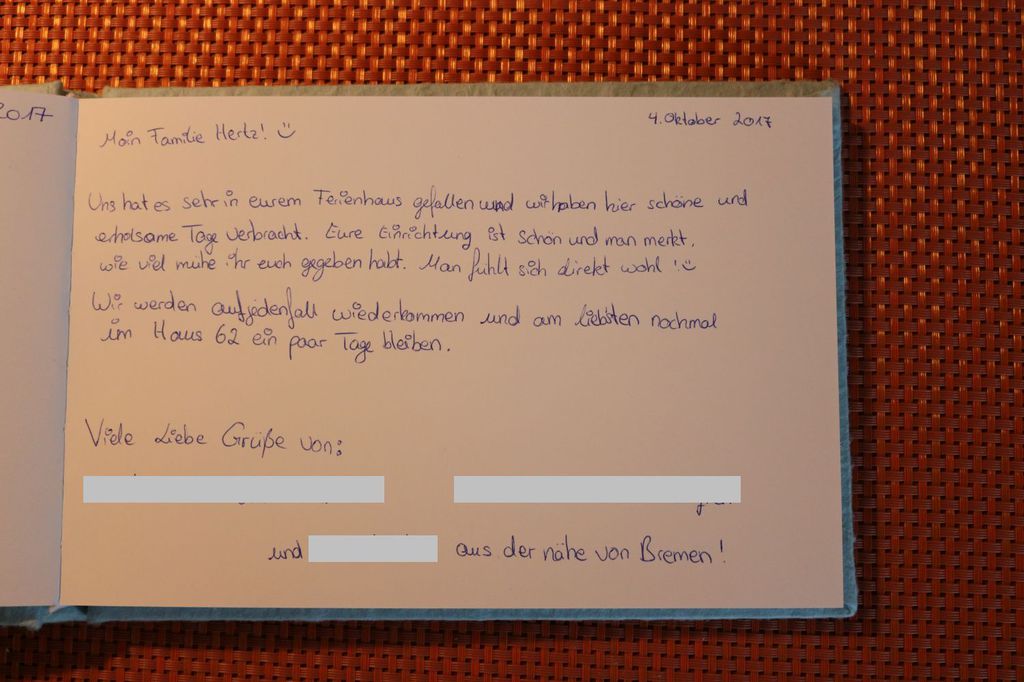 2017
4. Oktober 2017
Moin Familie Hertz! ☺
Uns hat es sehr in eurem Ferienhaus gefallen und wir haben hier schöne und
erholsame Tage verbracht. Eure Einrichtung ist schön und man merkt,
wie viel mühe ihr euch gegeben habt. Man fühlt sich direkt wohl! ☺
Wir werden aufjedenfall wiederkommen und am liebsten nochmal
im Haus 62 ein paar Tage bleiben.
Viele Liebe Grüße von:
und aus der nähe von Bremen!